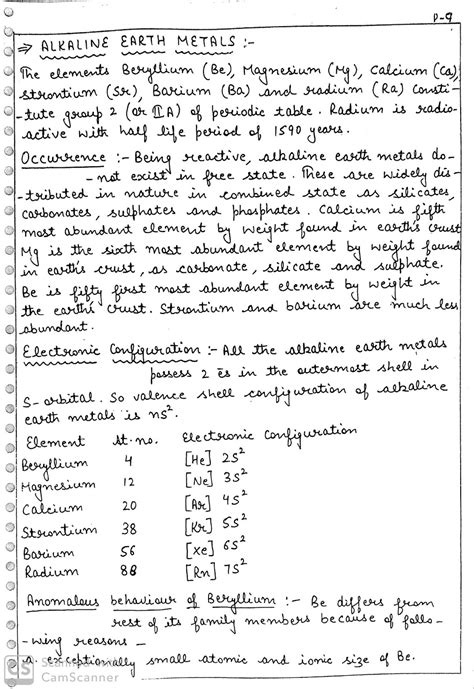 P-9
⇒ ALKALINE EARTH METALS :-
The elements Beryllium (Be), Magnesium (Mg), Calcium (Ca),
strontium (Sr), Barium (Ba) and radium (Ra) consti-
-tute group 2 (or IIA) of periodic table. Radium is radio-
active with half life period of 1590 years.
Occurrence :- Being reactive, alkaline earth metals do-
- not exist in free state. These are widely dis-
-tributed in nature in combined state as silicates,
carbonates, sulphates and phosphates. Calcium is fifth
most abundant element by weight found in earth's crust
Mg is the sixth most abundant element by weight found
in earth's crust, as carbonate, silicate and sulphate.
Be is fifty first most abundant element by weight in
the earth's crust. Strontium and barium are much less
abundant.
Electronic Configuration :- All the alkaline earth metals
possess 2 es in the outermost shell in
S-orbital. So valence shell configuration of alkaline
earth metals is ns².
Element At. no. Electronic Configuration
Beryllium 4 [He] 2S²
Magnesium 12 [Ne] 3S²
Calcium 20 [Ar] 4S²
Strontium 38 [Kr] 5S²
Barium 56 [Xe] 6S²
Radium 88 [Rn] 7S²
Anomalous behaviour of Beryllium :- Be differs from
rest of its family members because of follo-
-wing reasons -
a. exceptionally small atomic and ionic size of Be.
CS Scanned with
CamScanner